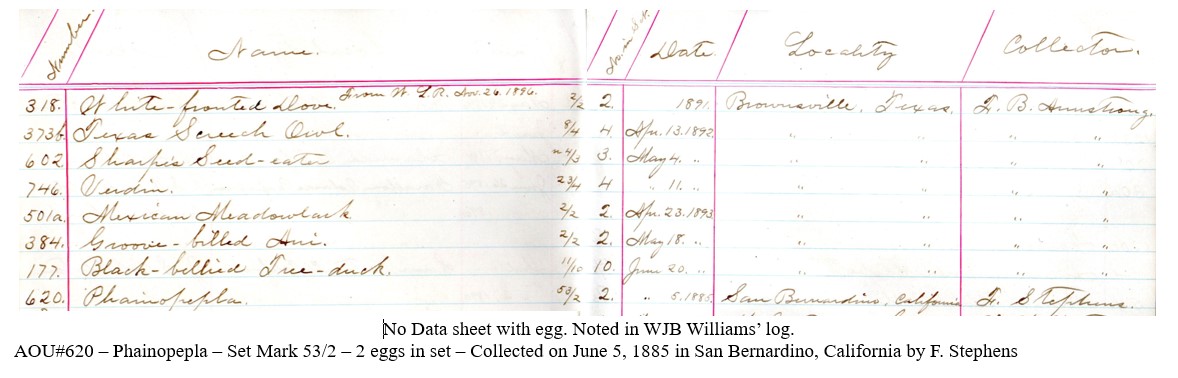 Number. Name. No. in Set. Date. Locality Collector.
318. White-fronted Dove. From W. L.R. Nov. 26. 1896. 2/2 2. 1891. Brownsville, Texas. F. B. Armstrong.
373b. Texas Screech Owl. 8/4 4. Apr. 13. 1892. " " " "
602. Sharpe's Seed-eater n4/3 3. May 4. " " " " "
746. Verdin. 23/4 4 " 11. " " " " "
501a. Mexican Meadowlark 2/2 2. Apr. 23. 1893 " " " "
384. Groove-billed Ani. 2/2 2. May 18. " " " " "
177. Black-bellied Tree-duck. 11/10 10. June 20. " " " " "
620. Phainopepla. 53/2 2. " 5. 1885. San Bernardino, California F. Stephens.
No Data sheet with egg. Noted in WJB Williams’ log.
AOU#620 – Phainopepla – Set Mark 53/2 – 2 eggs in set – Collected on June 5, 1885 in San Bernardino, California by F. Stephens